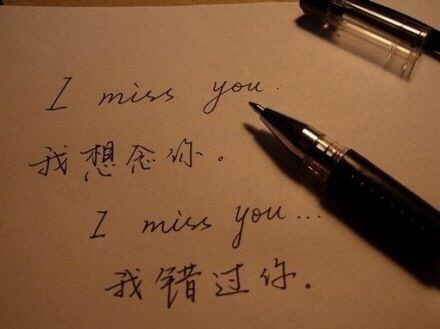 I miss you.
我想念你。
I miss you...
我错过你.